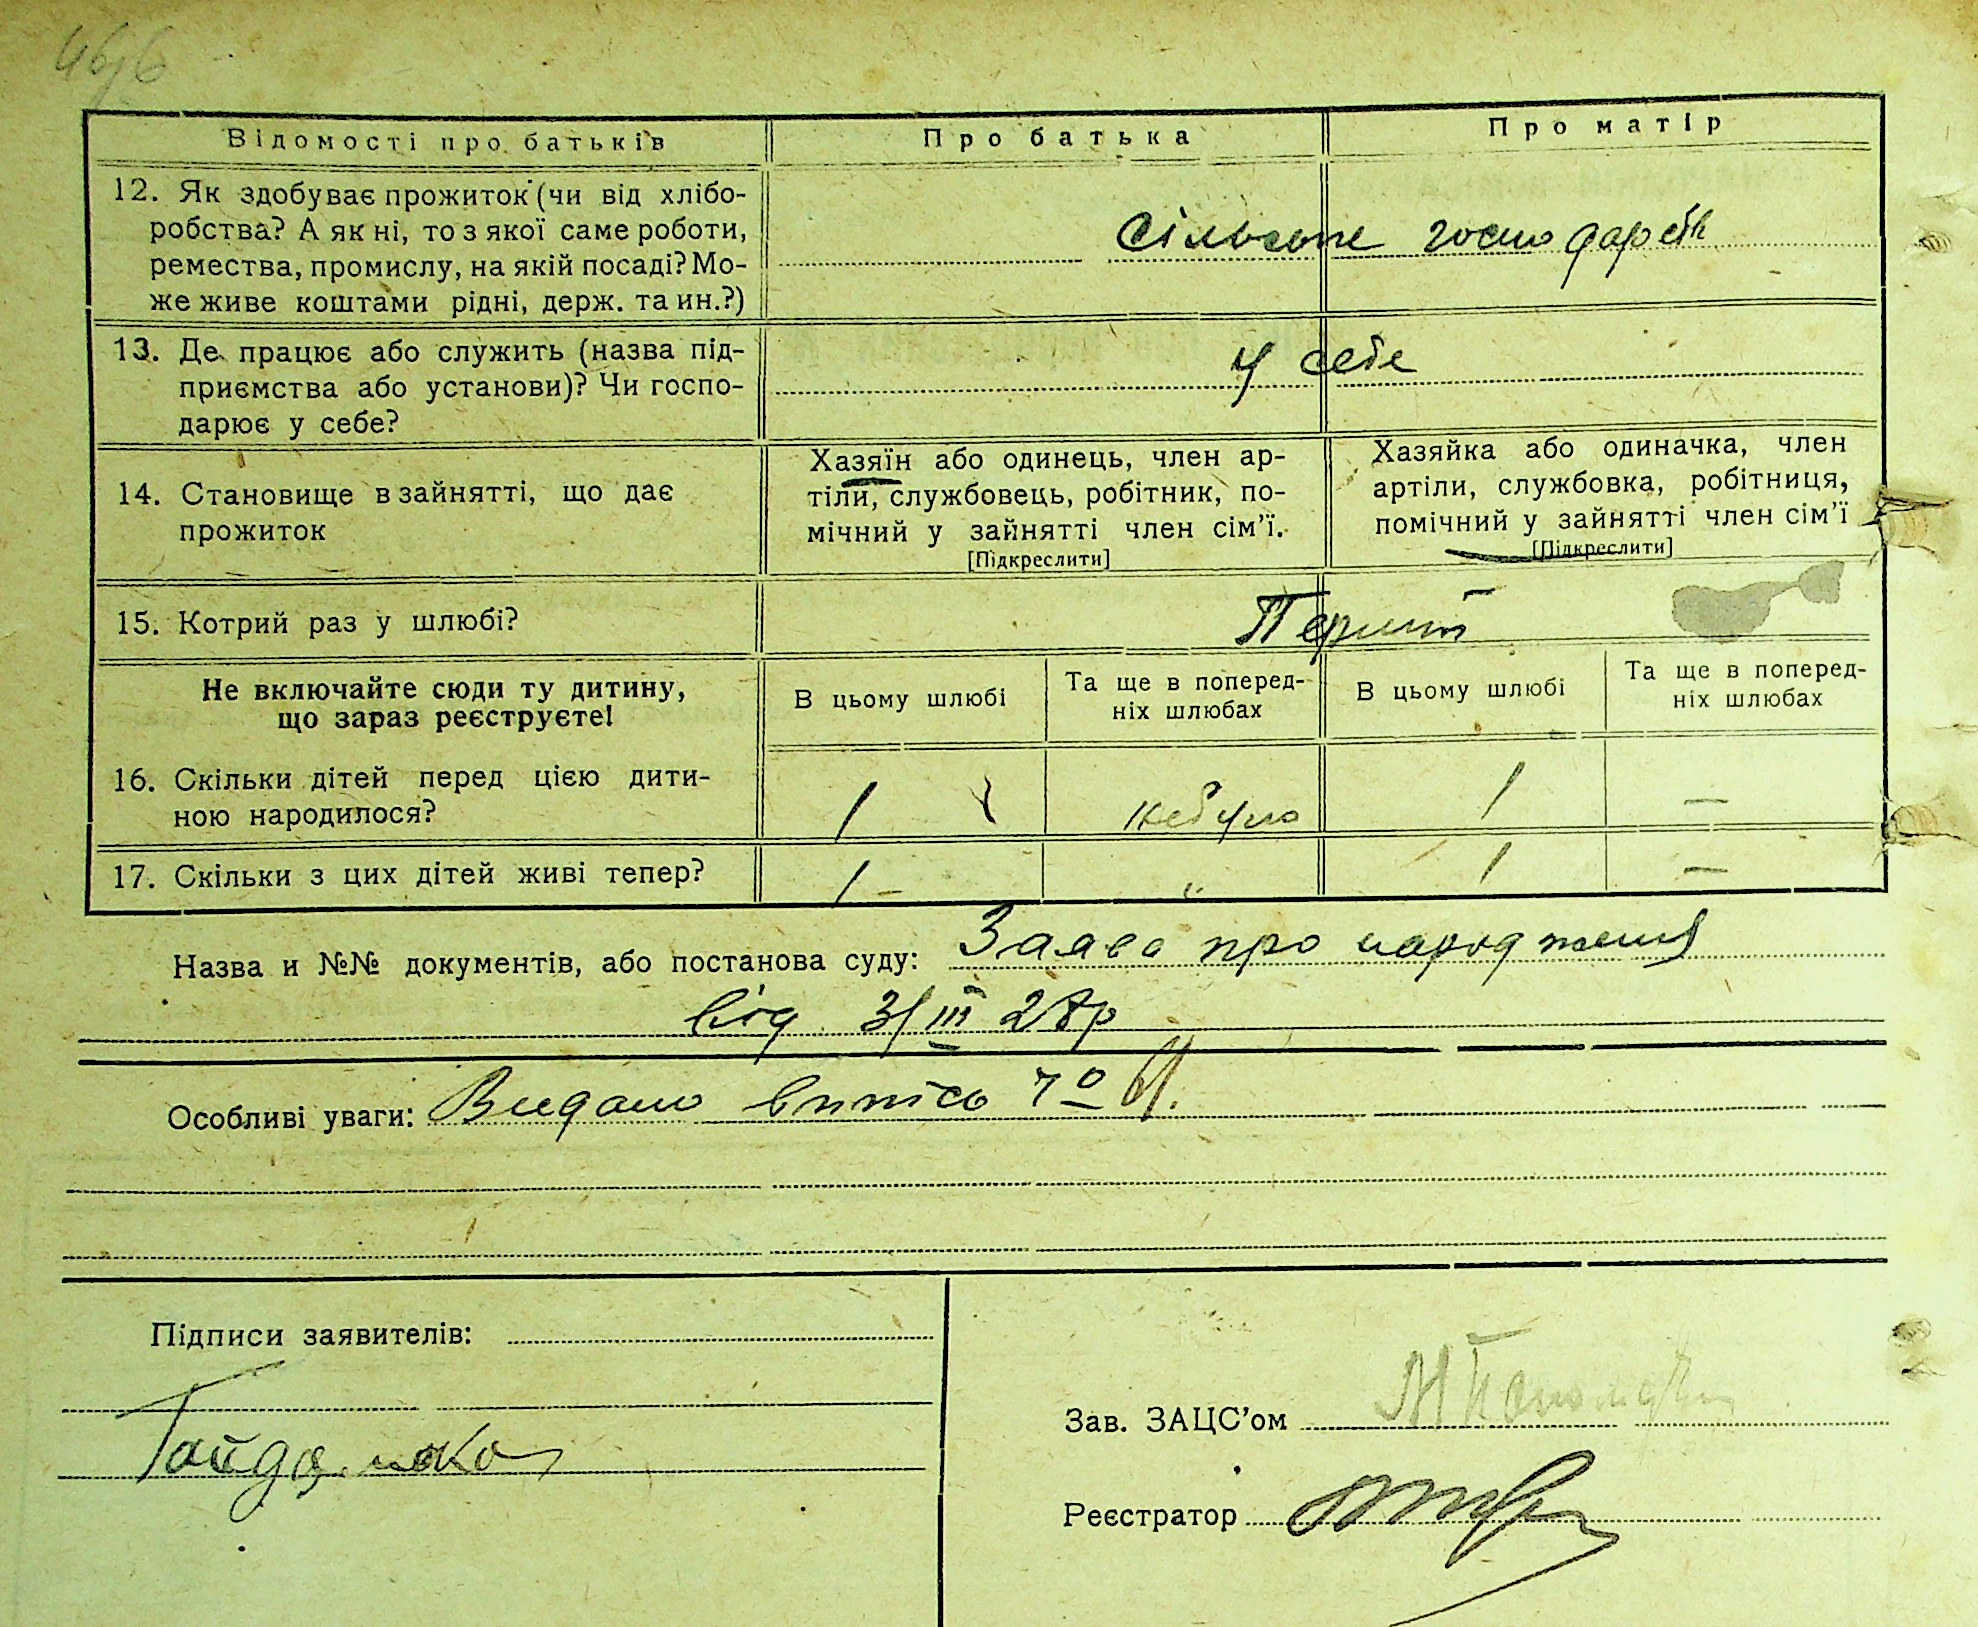 Відомості про батьків
Про батька
Про матір
12. Як здобуває прожиток (чи від хлібо-
робства? А як ні, то з якої саме роботи,
ремества, промислу, на якій посаді? Мо-
же живе коштами рідні, держ. та ин.?)
Сільське господарств
13. Де працює або служить (назва під-
приємства або установи)? Чи госпо-
дарює у себе?
у себе
14. Становище в зайнятті, що дає
прожиток
Хазяїн або одинець, член ар-
тіли, службовець, робітник, по-
мічний у зайнятті член сім'ї.
[Підкреслити]
Хазяйка або одиначка, член
артіли, службовка, робітниця,
помічний у зайнятті член сім'ї
[Підкреслити]
15. Котрий раз у шлюбі?
Перший
Не включайте сюди ту дитину,
що зараз реєструєте!
В цьому шлюбі
Та ще в поперед-
ніх шлюбах
В цьому шлюбі
Та ще в поперед-
ніх шлюбах
16. Скільки дітей перед цією дити-
ною народилося?
1
небуло
1
—
17. Скільки з цих дітей живі тепер?
1 –
"
1
—
Назва и №№ документів, або постанова суду: Заява про народження
від 3/III 28р
Особливі уваги: Видано випісь
Підписи заявителів:
Зав. ЗАЦС'ом
Реєстратор